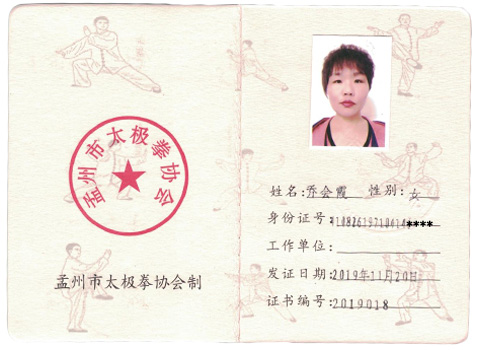 孟州市太极拳协会
孟州市太极拳协会制
姓名:乔会霞 性别:女
身份证号:
工作单位:
发证日期:2019年11月20日
证书编号:2019018